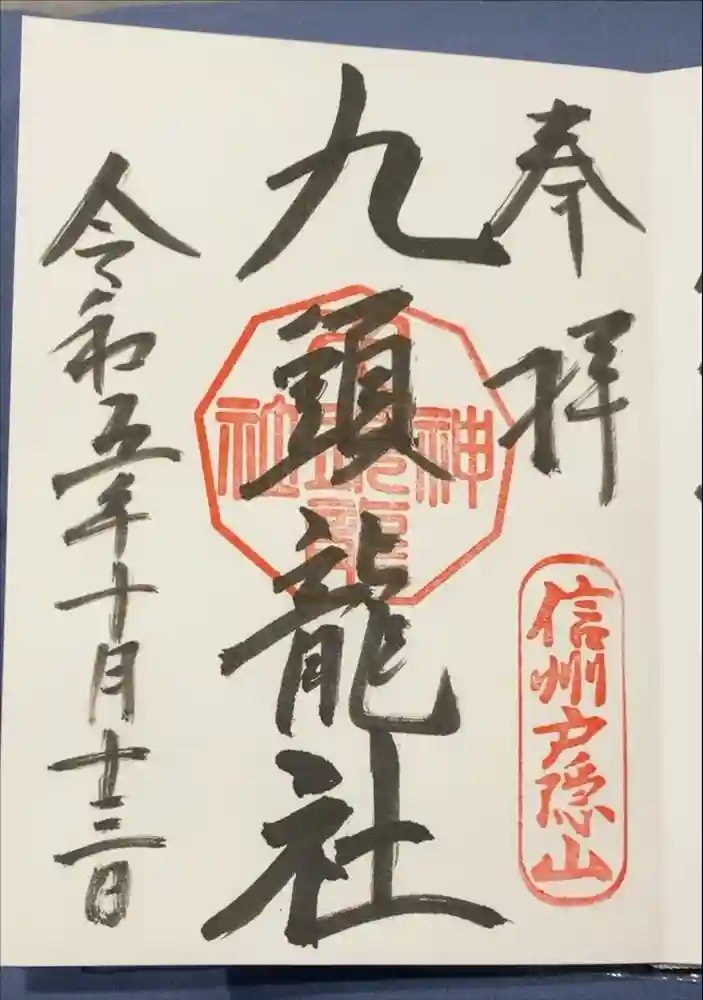 奉拝
信州戸隠山
九頭龍社
神
龍
社
令和五年十月十三日